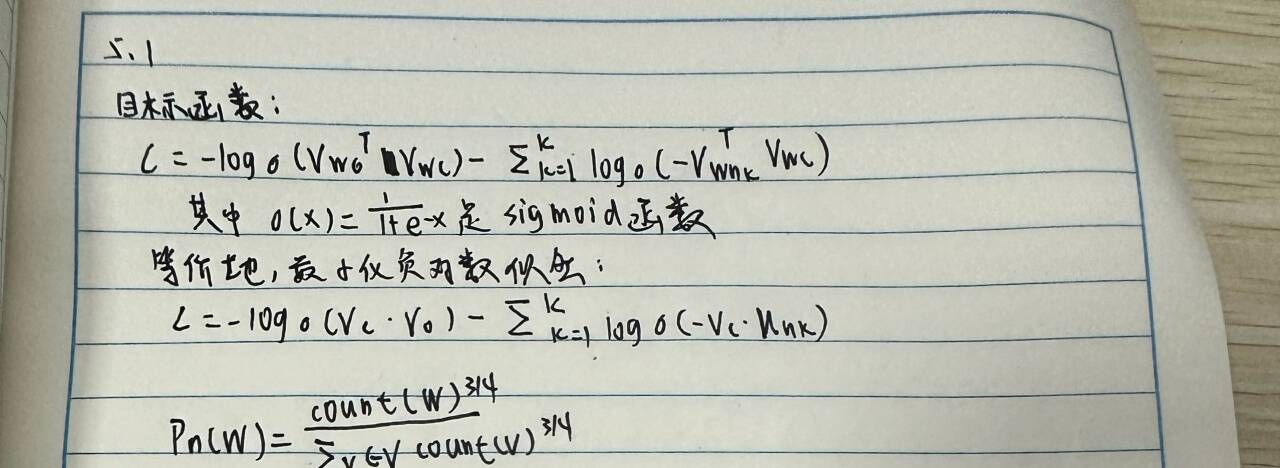 5.1
目标函数：
L = -log σ (Vwo^T Vwc) - Σ_{k=1}^K log σ (-Vwnk^T Vwc)
其中 σ(x) = 1/(1+e^-x) 是 sigmoid 函数
等价地，最小化负对数似然：
L = -log σ (Vc · Vo) - Σ_{k=1}^K log σ (-Vc · Unk)
Pn(W) = count(W)^3/4 / Σ_{v∈V} count(v)^3/4